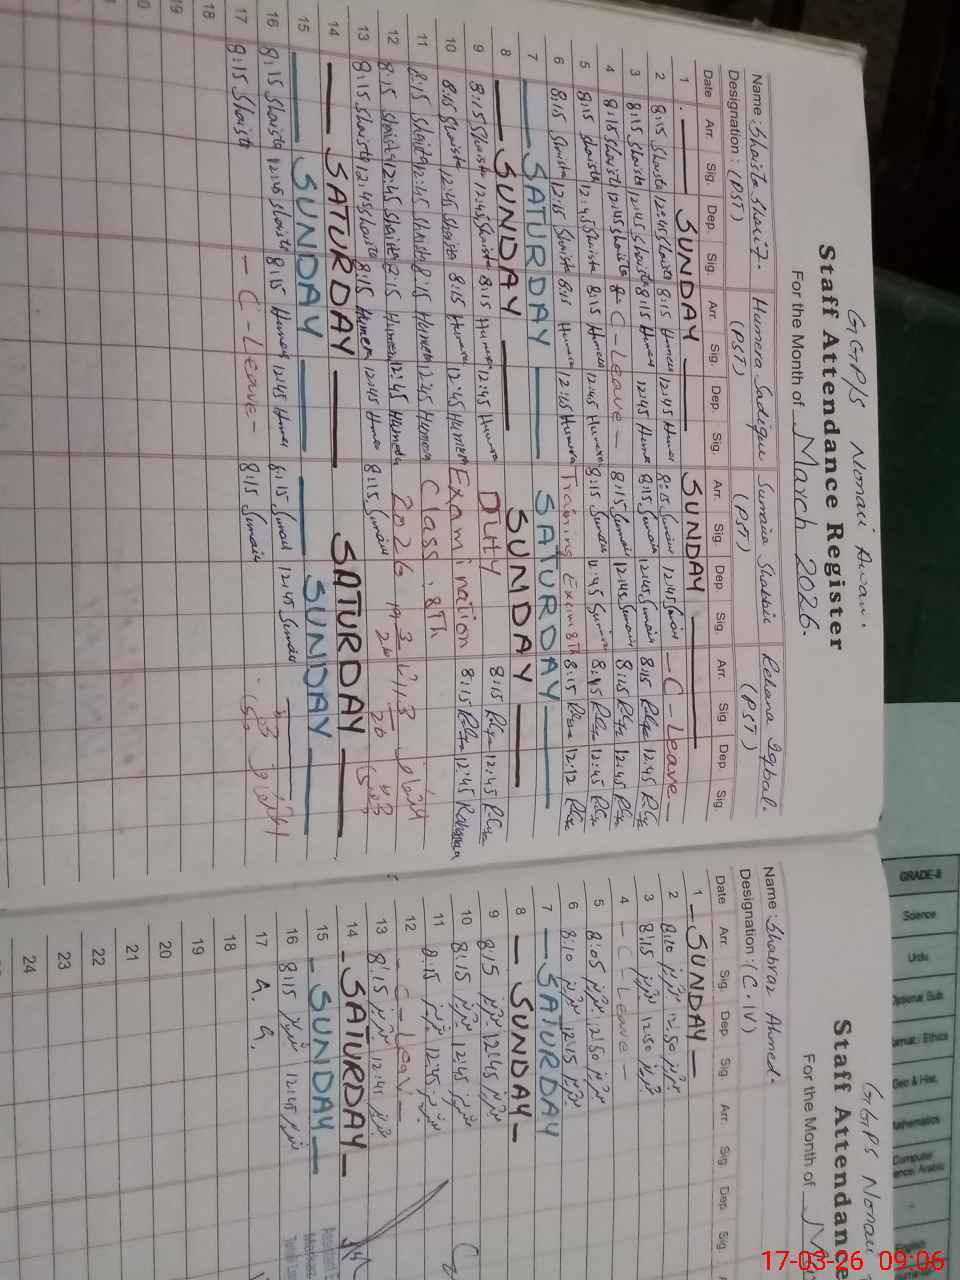 GGP/S Nonari Awan.
Staff Attendance Register
For the Month of March 2026.
Name: Shaista Sharif. Humera Sadique Sumaira Shabbir Rehana Iqbal.
Designation: (PST) (PST) (PST) (PST)
Date Arr. Sig. Dep. Sig. Arr. Sig. Dep. Sig. Arr. Sig. Dep Sig. Arr. Sig. Dep. Sig.
1 SUNDAY SUNDAY
2 8:15 Shaista 12:45 Shaista 8:15 Humera 12:45 Humera 8:15 Sumaira 12:45 Sumaira - C - Leave -
3 8:15 Shaista 12:45 Shaista 8:15 Humera 12:45 Humera 8:15 Sumaira 12:45 Sumaira 8:15 12:45
4 8:15 Shaista 12:45 Shaista - C - Leave - 8:15 Sumaira 12:45 Sumaira 8:15 12:45
5 8:15 Shaista 12:45 Shaista 8:15 Humera 12:45 Humera 8:15 Sumaira 12:45 Sumaira 8:45 12:45
6 8:15 Shaista 12:15 Shaista 8:15 Humera 12:15 Humera Training Exam 8th 8:15 12:12
7 SATURDAY SATURDAY
8 SUNDAY SUNDAY
9 8:15 Shaista 12:45 Shaista 8:15 Humera 12:45 Humera DUTY 8:15 12:45
10 8:15 Shaista 12:45 Shaista 8:15 Humera 12:45 Humera Examination 8:15 12:45 Rehana
11 8:15 Shaista 12:45 Shaista 8:15 Humera 12:45 Humera Class: 8th
12 8:15 Shaista 12:45 Shaista 8:15 Humera 12:45 Humera 2026
13 8:15 Shaista 12:45 Shaista 8:15 Humera 12:45 Humera 8:15 Sumaira
14 SATURDAY SATURDAY
15 SUNDAY SUNDAY
16 8:15 Shaista 12:45 Shaista 8:15 Humera 12:45 Humera 8:15 Sumaira 12:45 Sumaira
17 8:15 Shaista - C - Leave - 8:15 Sumaira
18
19
20
GGPS Nonari
Staff Attendance
For the Month of
Name: Shahraz Ahmed.
Designation: (C.IV)
Date Arr. Sig. Dep Sig. Arr. Sig. Dep Sig.
1 - SUNDAY -
2 8:10 12:50
3 8:15 12:50
4 - C - Leave -
5 8:05 12:50
6 8:10 12:15
7 - SATURDAY
8 - SUNDAY -
9 8:15 12:45
10 8:15 12:45
11 8:15 12:45
12 - C - Leave -
13 8:15 12:45
14 - SATURDAY -
15 - SUNDAY -
16 8:15 12:45
17 A. A.
18
19
20
21
22
23
24
GRADE-8
Science
Urdu
Optional Sub
Ethics
Geo & Hist.
Mathematics
Computer
English
17-03-26 09:06